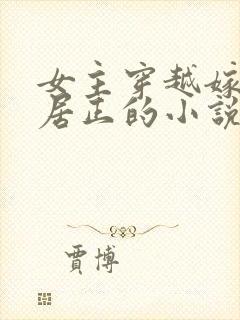 女主穿越嫁
居正的小説
賈博